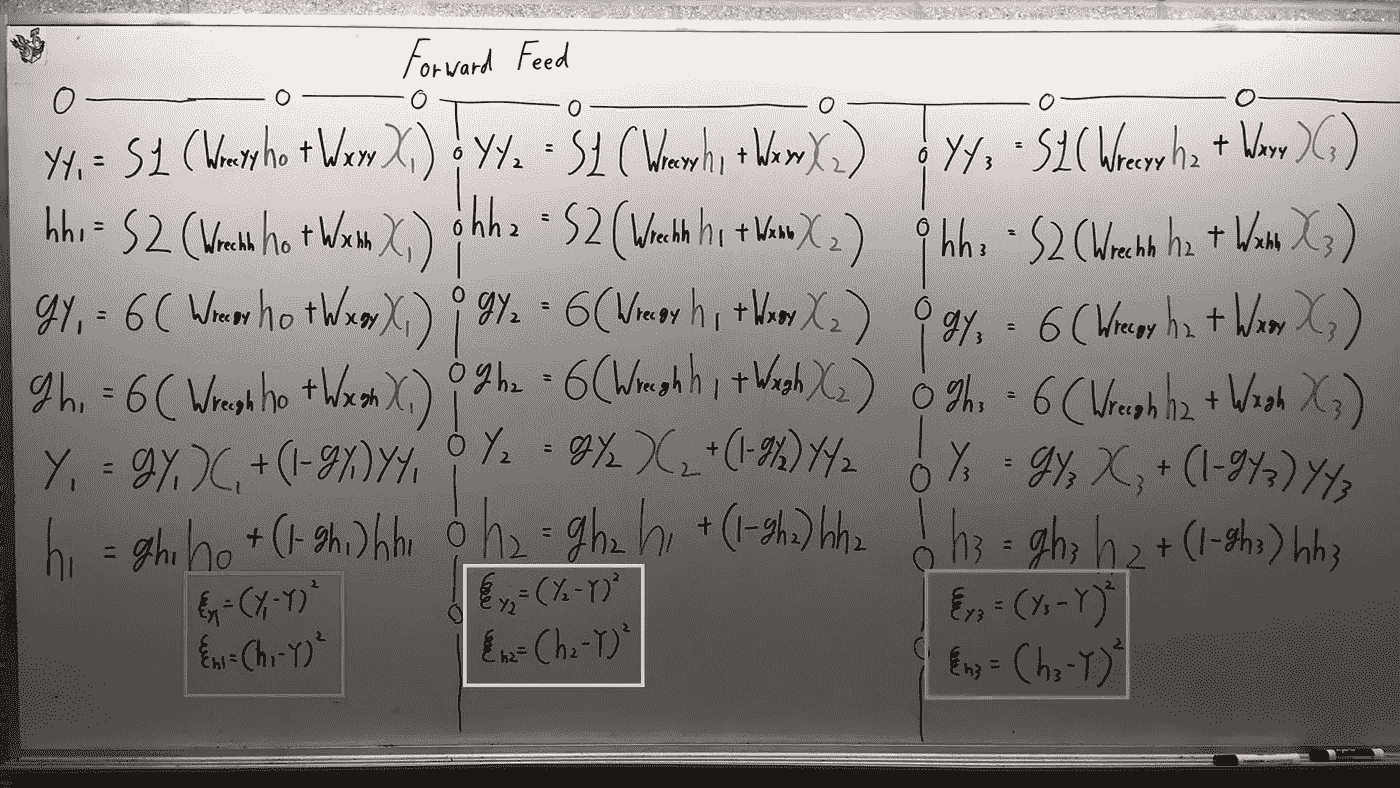 Forward Feed
yy₁ = S1 (Wrecyy h₀ + Wxyy X₁)
hh₁ = S2 (Wrechh h₀ + Wxhh X₁)
gy₁ = 6 (Wrecgy h₀ + Wxgy X₁)
gh₁ = 6 (Wrecgh h₀ + Wxgh X₁)
Y₁ = gy₁ X₁ + (1-gy₁) yy₁
h₁ = gh₁ h₀ + (1-gh₁) hh₁
ξy₁ = (y₁-Y)²
ξh₁ = (h₁-Y)²
yy₂ = S1 (Wrecyy h₁ + Wxyy X₂)
hh₂ = S2 (Wrechh h₁ + Wxhh X₂)
gy₂ = 6 (Wrecgy h₁ + Wxgy X₂)
gh₂ = 6 (Wrecgh h₁ + Wxgh X₂)
Y₂ = gy₂ X₂ + (1-gy₂) yy₂
h₂ = gh₂ h₁ + (1-gh₂) hh₂
ξy₂ = (Y₂-Y)²
ξh₂ = (h₂-Y)²
yy₃ = S1 (Wrecyy h₂ + Wxyy X₃)
hh₃ = S2 (Wrechh h₂ + Wxhh X₃)
gy₃ = 6 (Wrecgy h₂ + Wxgy X₃)
gh₃ = 6 (Wrecgh h₂ + Wxgh X₃)
Y₃ = gy₃ X₃ + (1-gy₃) yy₃
h₃ = gh₃ h₂ + (1-gh₃) hh₃
ξy₃ = (y₃-Y)²
ξh₃ = (h₃-Y)²